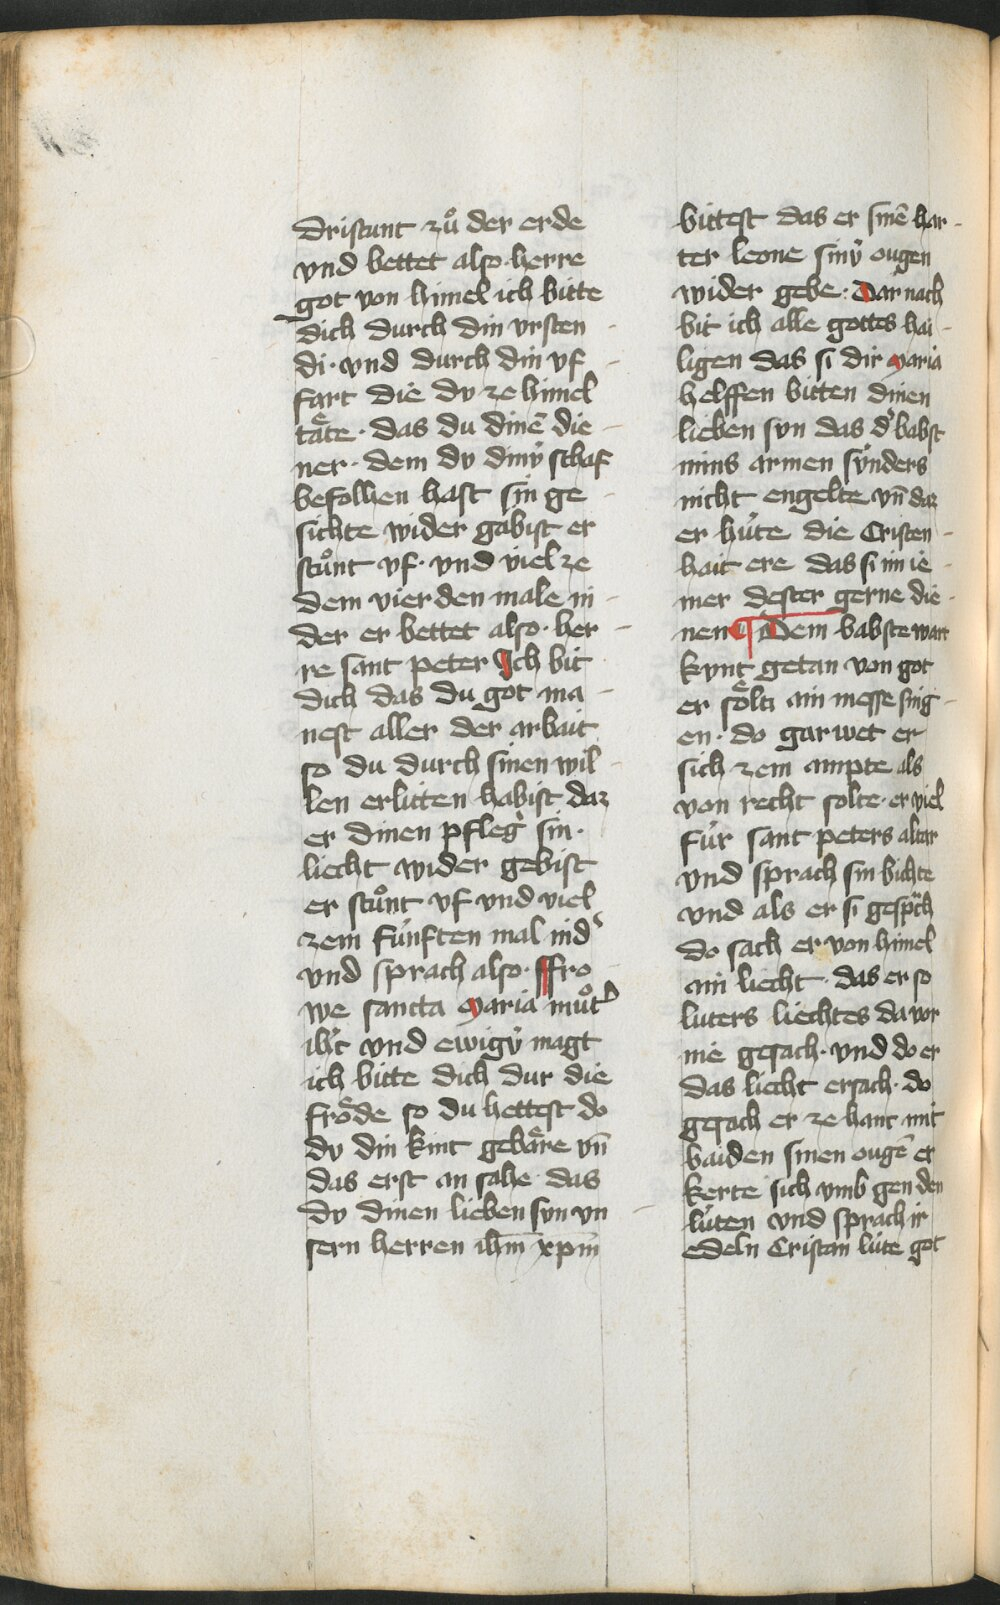 dristunt zuͦ der erde
vnd bettet also · herre
got von himel ich bitte
dich durch din vrsten -
di · vnd durch din vf -
fart die dv ze himel
taͤte · das du dinē die -
ner · dem dv dinv̍ schaf
befolhen hast sin ge -
sichte wider gabist er
stuͦnt vf · vnd viel ze
dem vierden male ni -
der er bettet also · her -
re sant peter Ich bit
dich das du got ma -
nest aller der arbait
so du durch sinen wil -
len erlitten habist daz
er dinen pfleg̍ sin ·
liecht wider gebist
er stuͦnt vf vnd viel
zem fu̍nften mal nid̍
vnd sprach also · ffro -
we sancta maria muͦt̍
ih̄c vnd ewigv̍ magt
ich bitte dich dur die
froͤde so du hettest do
dv din kint gebaͤre vn̄
das erst an sahe · das
dv dinen lieben svn vn -
sern herren ih̄m xp̄m
bittest das er sinē har -
ter leone sinv̍ ougen
wider gebe · Dar nach
bit ich alle gottes hai -
ligen das si dir maria
helffen bitten dinen
lieben svn das d̍ babst
mins armen sv̍nders
nicht engelte vn̄ daz
er hu̍te die Cristen -
hait ere das si im ie -
mer dester gerne die -
nen ¶ Dem babste wart
kvnt getan von got
er soͤlti ain messe sing -
en · do garwet er
sich zem ampte als
von recht solte · er viel
fu̍r sant peters altar
vnd sprach sin bichte
vnd als er si gesp̄ch
do sach er von himel
ain liecht · das er so
luters liechtes da vor
nie gesach · vnd do er
das liecht ersach · do
gesach er ze hant mit
baiden sinen ougē er
kerte sich vmb gen den
lu̍ten vnd sprach ir
edeln Cristan lu̍te got